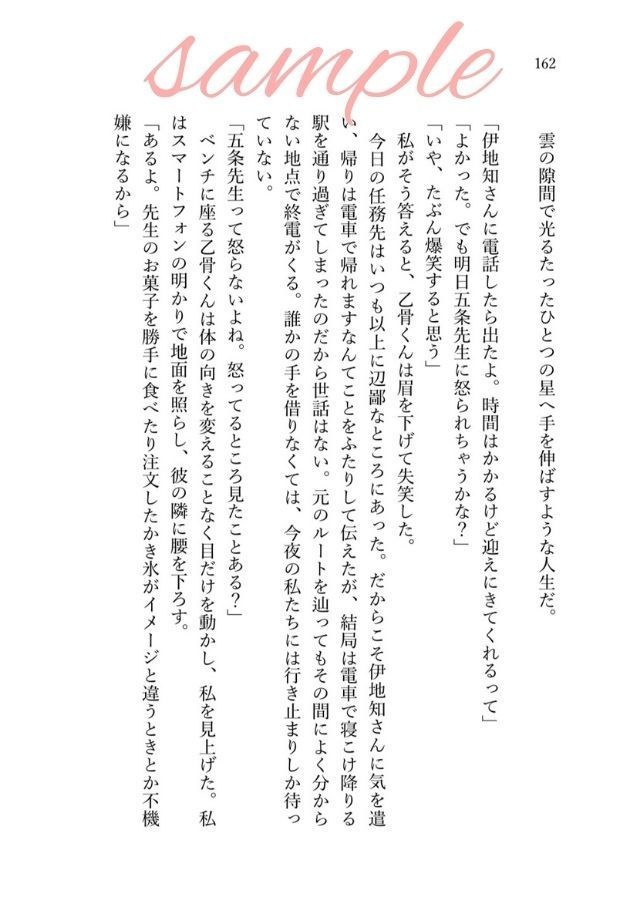 sample
162
雲の隙間で光るたったひとつの星へ手を伸ばすような人生だ。
「伊地知さんに電話したら出たよ。時間はかかるけど迎えにきてくれるって」
「よかった。でも明日五条先生に怒られちゃうかな？」
「いや、たぶん爆笑すると思う」
私がそう答えると、乙骨くんは眉を下げて失笑した。
今日の任務先はいつも以上に辺鄙なところにあった。だからこそ伊地知さんに気を遣
い、帰りは電車で帰れますなんてことをふたりして伝えたが、結局は電車で寝こけ降りる
駅を通り過ぎてしまったのだから世話はない。元のルートを辿ってもその間によく分から
ない地点で終電がくる。誰かの手を借りなくては、今夜の私たちには行き止まりしか待っ
ていない。
「五条先生って怒らないよね。怒ってるところ見たことある？」
ベンチに座る乙骨くんは体の向きを変えることなく目だけを動かし、私を見上げた。私
はスマートフォンの明かりで地面を照らし、彼の隣に腰を下ろす。
「あるよ。先生のお菓子を勝手に食べたり注文したかき氷がイメージと違うときとか不機
嫌になるから」